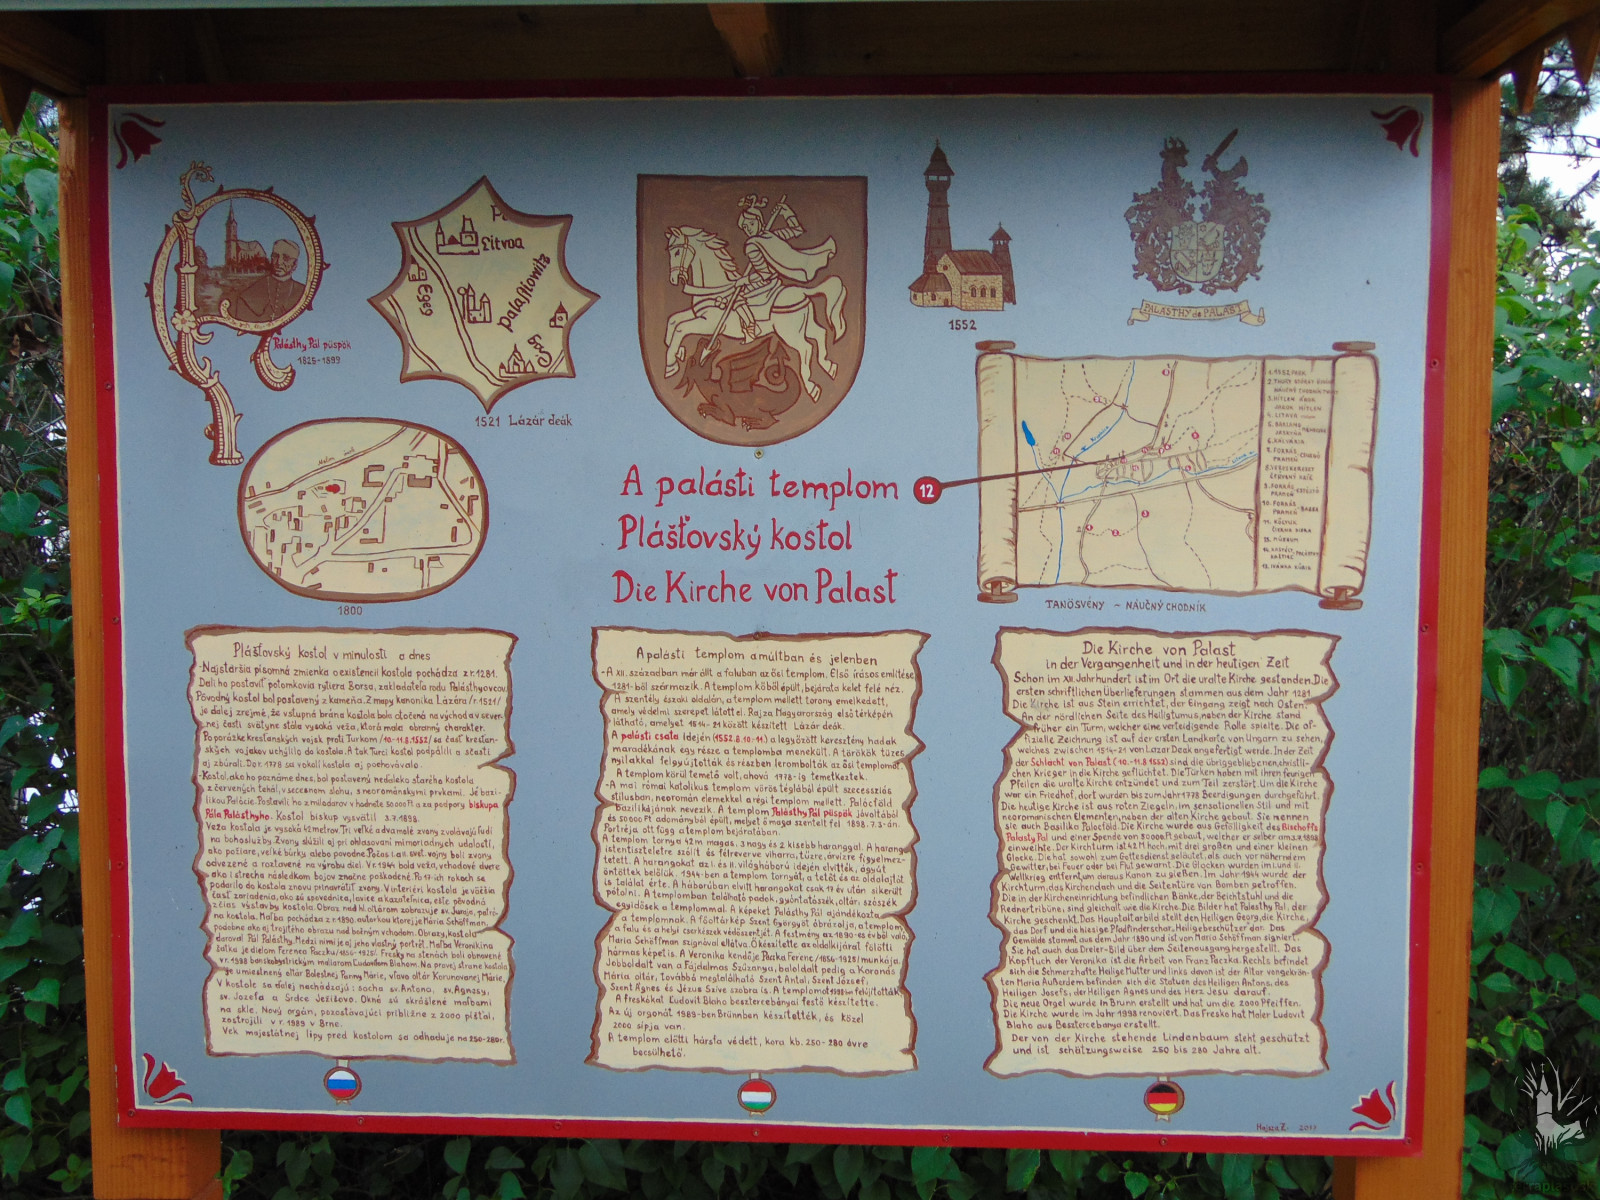 Palásthy Pál püspök
1825-1899
Litvoa
Egeg
Palastiowitz
1521 Lázár deák
1552
PALASTHY de PALAST
1800
A palásti templom
12
Plášťovský kostol
Die Kirche von Palast
TANÖSVÉNY - NÁUČNÝ CHODNÍK
Plášťovský kostol v minulosti a dnes
-Najstaršia písomná zmienka o existencii kostola pochádza z r. 1281.
Dali ho postaviť potomkovia rytiera Borsa, zakladateľa rodu Palásthyovcov.
Pôvodný kostol bol postavený z kameňa. Z mapy kanonika Lázára /r.1521/
je ďalej zrejmé, že vstupná brána kostola bola otočená na východ a v sever-
nej časti svätyne stála vysoká veža, ktorá mala obranný charakter.
Po porážke kresťanských vojsk proti Turkom /10.-11.8.1552/ sa časť kresťan-
ských vojakov uchýlilo do kostola. A tak Turci kostol podpálili a sčasti
aj zbúrali. Do r. 1778 sa v okolí kostola aj pochovávalo.
-Kostol, ako ho poznáme dnes, bol postavený neďaleko starého kostola
z červených tehál, v secesnom slohu, s neorománskymi prvkami. Je bazi-
likou Palócie. Postavili ho z milodarov v hodnote 50000 Ft a za podpory biskupa
Pála Palásthyho. Kostol biskup vysvätil 3.7.1898.
Veža kostola je vysoká 42 metrov. Tri veľké a dva malé zvony zvolávajú ľudí
na bohoslužby. Zvony slúžili aj pri ohlasovaní mimoriadnych udalostí,
ako požiare, veľké búrky alebo povodne. Počas I. a II. svet. vojny boli zvony
odvezené a roztavené na výrobu diel. V r. 1944 bola veža, vchodové dvere
ako i strecha následkom bojov značne poškodené. Po 17-ich rokoch sa
podarilo do kostola znovu prinavrátiť zvony. V interiéri kostola je väčšia
časť zariadenia, ako sú spovednica, lavice a kazateľnica, ešte pôvodná
z čias výstavby kostola. Obraz nad hl. oltárom zobrazuje sv. Juraja, patró-
na kostola. Maľba pochádza z r. 1890, autorkou ktorej je Mária Schöffman,
podobne ako aj trojitého obrazu nad bočným vchodom. Obrazy, kostola
daroval Pál Palásthy. Medzi nimi je aj jeho vlastný portrét. Maľba Veronikina
šatka je dielom Ferenca Paczku /1856-1925/. Fresky na stenách boli obnovené
v r. 1998 banskobystrickým maliarom Ľudovítom Blahom. Na pravej strane kostola
je umiestnený oltár Bolestnej Panny Márie, vľavo oltár Korunovanej Márie.
V kostole sa ďalej nachádzajú: socha sv. Antona, sv. Agnesy,
sv. Jozefa a Srdce Ježišovo. Okná sú skrášlené maľbami
na skle. Nový orgán, pozostávajúci približne z 2000 píšťal,
zostrojili v r. 1989 v Brne.
Vek majestátnej lipy pred kostolom sa odhaduje na 250-280r.
A palásti templom a múltban és jelenben
-A XII. században már állt a faluban az ősi templom. Első írásos említése
1281-ből származik. A templom kőből épült, bejárata kelet felé néz.
A szentély északi oldalán, a templom mellett torony emelkedett,
amely védelmi szerepet látott el. Rajza Magyarország első térképén
látható, amelyet 1514-21 között készített Lázár deák.
A palásti csata idején (1552.8.10.-11.) a legyőzött keresztény hadak
maradékának egy része a templomba menekült. A törökök tüzes
nyilakkal felgyújtották és részben lerombolták az ősi templomot.
A templom körül temető volt, ahová 1778-ig temetkeztek.
-A mai római katolikus templom vörös téglából épült szecessziós
stílusban, neoromán elemekkel a régi templom mellett. Palócföld
Bazilikájának nevezik. A templom Palásthy Pál püspök jóváltából
és 50000 Ft adományból épült, melyet ő maga szentelt fel 1898.7.3-án.
Portréja ott függ a templom bejáratában.
A templom tornya 42 m magas. 3 nagy és 2 kisebb haranggal. A harang
istentiszteletre szólít és félreverve viharra, tűzre, árvízre figyelmez-
tetett. A harangokat az I. és II. világháború idején elvitték, ágyút
öntöttek belőlük. 1944-ben a templom tornyát, a tetőt és az oldalajtót
is találat érte. A háborúban elvitt harangokat csak 17 év után sikerült
pótolni. A templomban található padok, gyóntatószék, oltár, szószék
egyidősek a templommal. A képeket Palásthy Pál ajándékozta
a templomnak. A főoltárkép Szent Györgyöt ábrázolja, a templom,
a falu és a helyi cserkészek védőszentjét. A festmény az 1890-es évből való,
Maria Schöffman szignóval ellátva. Ő készítette az oldalkijárat fölötti
hármas képet is. A Veronika kendője Paczka Ferenc /1856-1925/ munkája.
Jobboldalt van a Fájdalmas Szűzanya, baloldalt pedig a Koronás
Mária oltár, továbbá megtalálható Szent Antal, Szent József,
Szent Ágnes és Jézus Szíve szobra is. A templomot 1998-ban felújították.
A freskókat Ľudovít Blaho besztercebányai festő készítette.
Az új orgonát 1989-ben Brünnben készítették, és közel
2000 sípja van.
A templom előtti hársfa védett, kora kb. 250-280 évre
becsülhető.
Die Kirche von Palast
in der Vergangenheit und in der heutigen Zeit
Schon im XII. Jahrhundert ist im Ort die uralte Kirche gestanden. Die
ersten schriftlichen Überlieferungen stammen aus dem Jahr 1281.
Die Kirche ist aus Stein errichtet, der Eingang zeigt nach Osten.
An der nördlichen Seite des Heiligtumus, neben der Kirche stand
früher ein Turm, welcher eine verteidigende Rolle spielte. Die of-
fizielle Zeichnung ist auf der ersten Landkarte von Ungarn zu sehen,
welches zwischen 1514-21 von Lazar Deak angefertigt werde. In der Zeit
der Schlacht von Palast (10.-11.8 1552) sind die übriggebliebenen, christli-
chen Krieger in die Kirche geflüchtet. Die Türken haben mit ihren feurigen
Pfeilen die uralte Kirche entzündet und zum Teil zerstört. Um die Kirche
war ein Friedhof, dort wurden bis zum Jahr 1778 Beerdigungen durchgeführt.
Die heutige Kirche ist aus roten Ziegeln, im sensationellen Stil und mit
neoromanischen Elementen, neben der alten Kirche gebaut. Sie nennen
sie auch Basilika Palocföld. Die Kirche wurde aus Gefälligkeit des Bischoffs
Palasty Pal und einer Spende von 50000 Ft gebaut, welcher er selber am 3.7.1898
einweihte. Der Kirchturm ist 42 M. hoch, mit drei großen und einer kleinen
Glocke. Die hat sowohl zum Gottesdienst geläutet, als auch vor näherndem
Gewitter, bei Feuer oder bei Flut gewarnt. Die Glocken wurden im I. und II.
Weltkrieg entfernt, um daraus Kanon zu gießen. Im Jahr 1944 wurde der
Kirchturm, das Kirchendach und die Seitentüre von Bomben getroffen.
Die in der Kircheneinrichtung befindlichen Bänke, der Beichtstuhl und die
Rednertribüne, sind gleichalt wie die Kirche. Die Bilder hat Palasthy Pal, der
Kirche geschenkt. Das Hauptaltarbild stellt den Heiligen Georg, die Kirche,
das Dorf und die hiesige Pfadfinderschar, Heiligebeschützer dar. Das
Gemälde stammt aus dem Jahr 1890 und ist von Maria Schöffman signiert.
Sie hat auch das Dreier-Bild über dem Seitenausgang hergestellt. Das
Kopftuch der Veronika ist die Arbeit von Franz Paczka. Rechts befindet
sich die Schmerzhafte Halige Mutter und links davon ist der Altar von gekrön-
ten Maria. Außerdem befinden sich die Statuen des Heiligen Antons, des
Heiligen Josefs, der Heiligen Agnes und des Herz Jesu darauf.
Die neue Orgel wurde in Brunn erstellt und hat um die 2000 Pfeiffen.
Die Kirche wurde im Jahr 1998 renoviert. Das Fresko hat Maler Ludovit
Blaho aus Besztercebanya erstellt.
Der von der Kirche stehende Lindenbaum steht geschützt
und ist schätzungsweise 250 bis 280 Jahre alt.
Hajsza Z. 2017